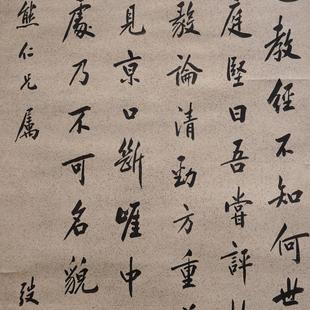 教經不知何世
庭堅曰吾嘗評
毅論清勁方重
見京口斷崖中
處乃不可名貌
熊仁兄屬